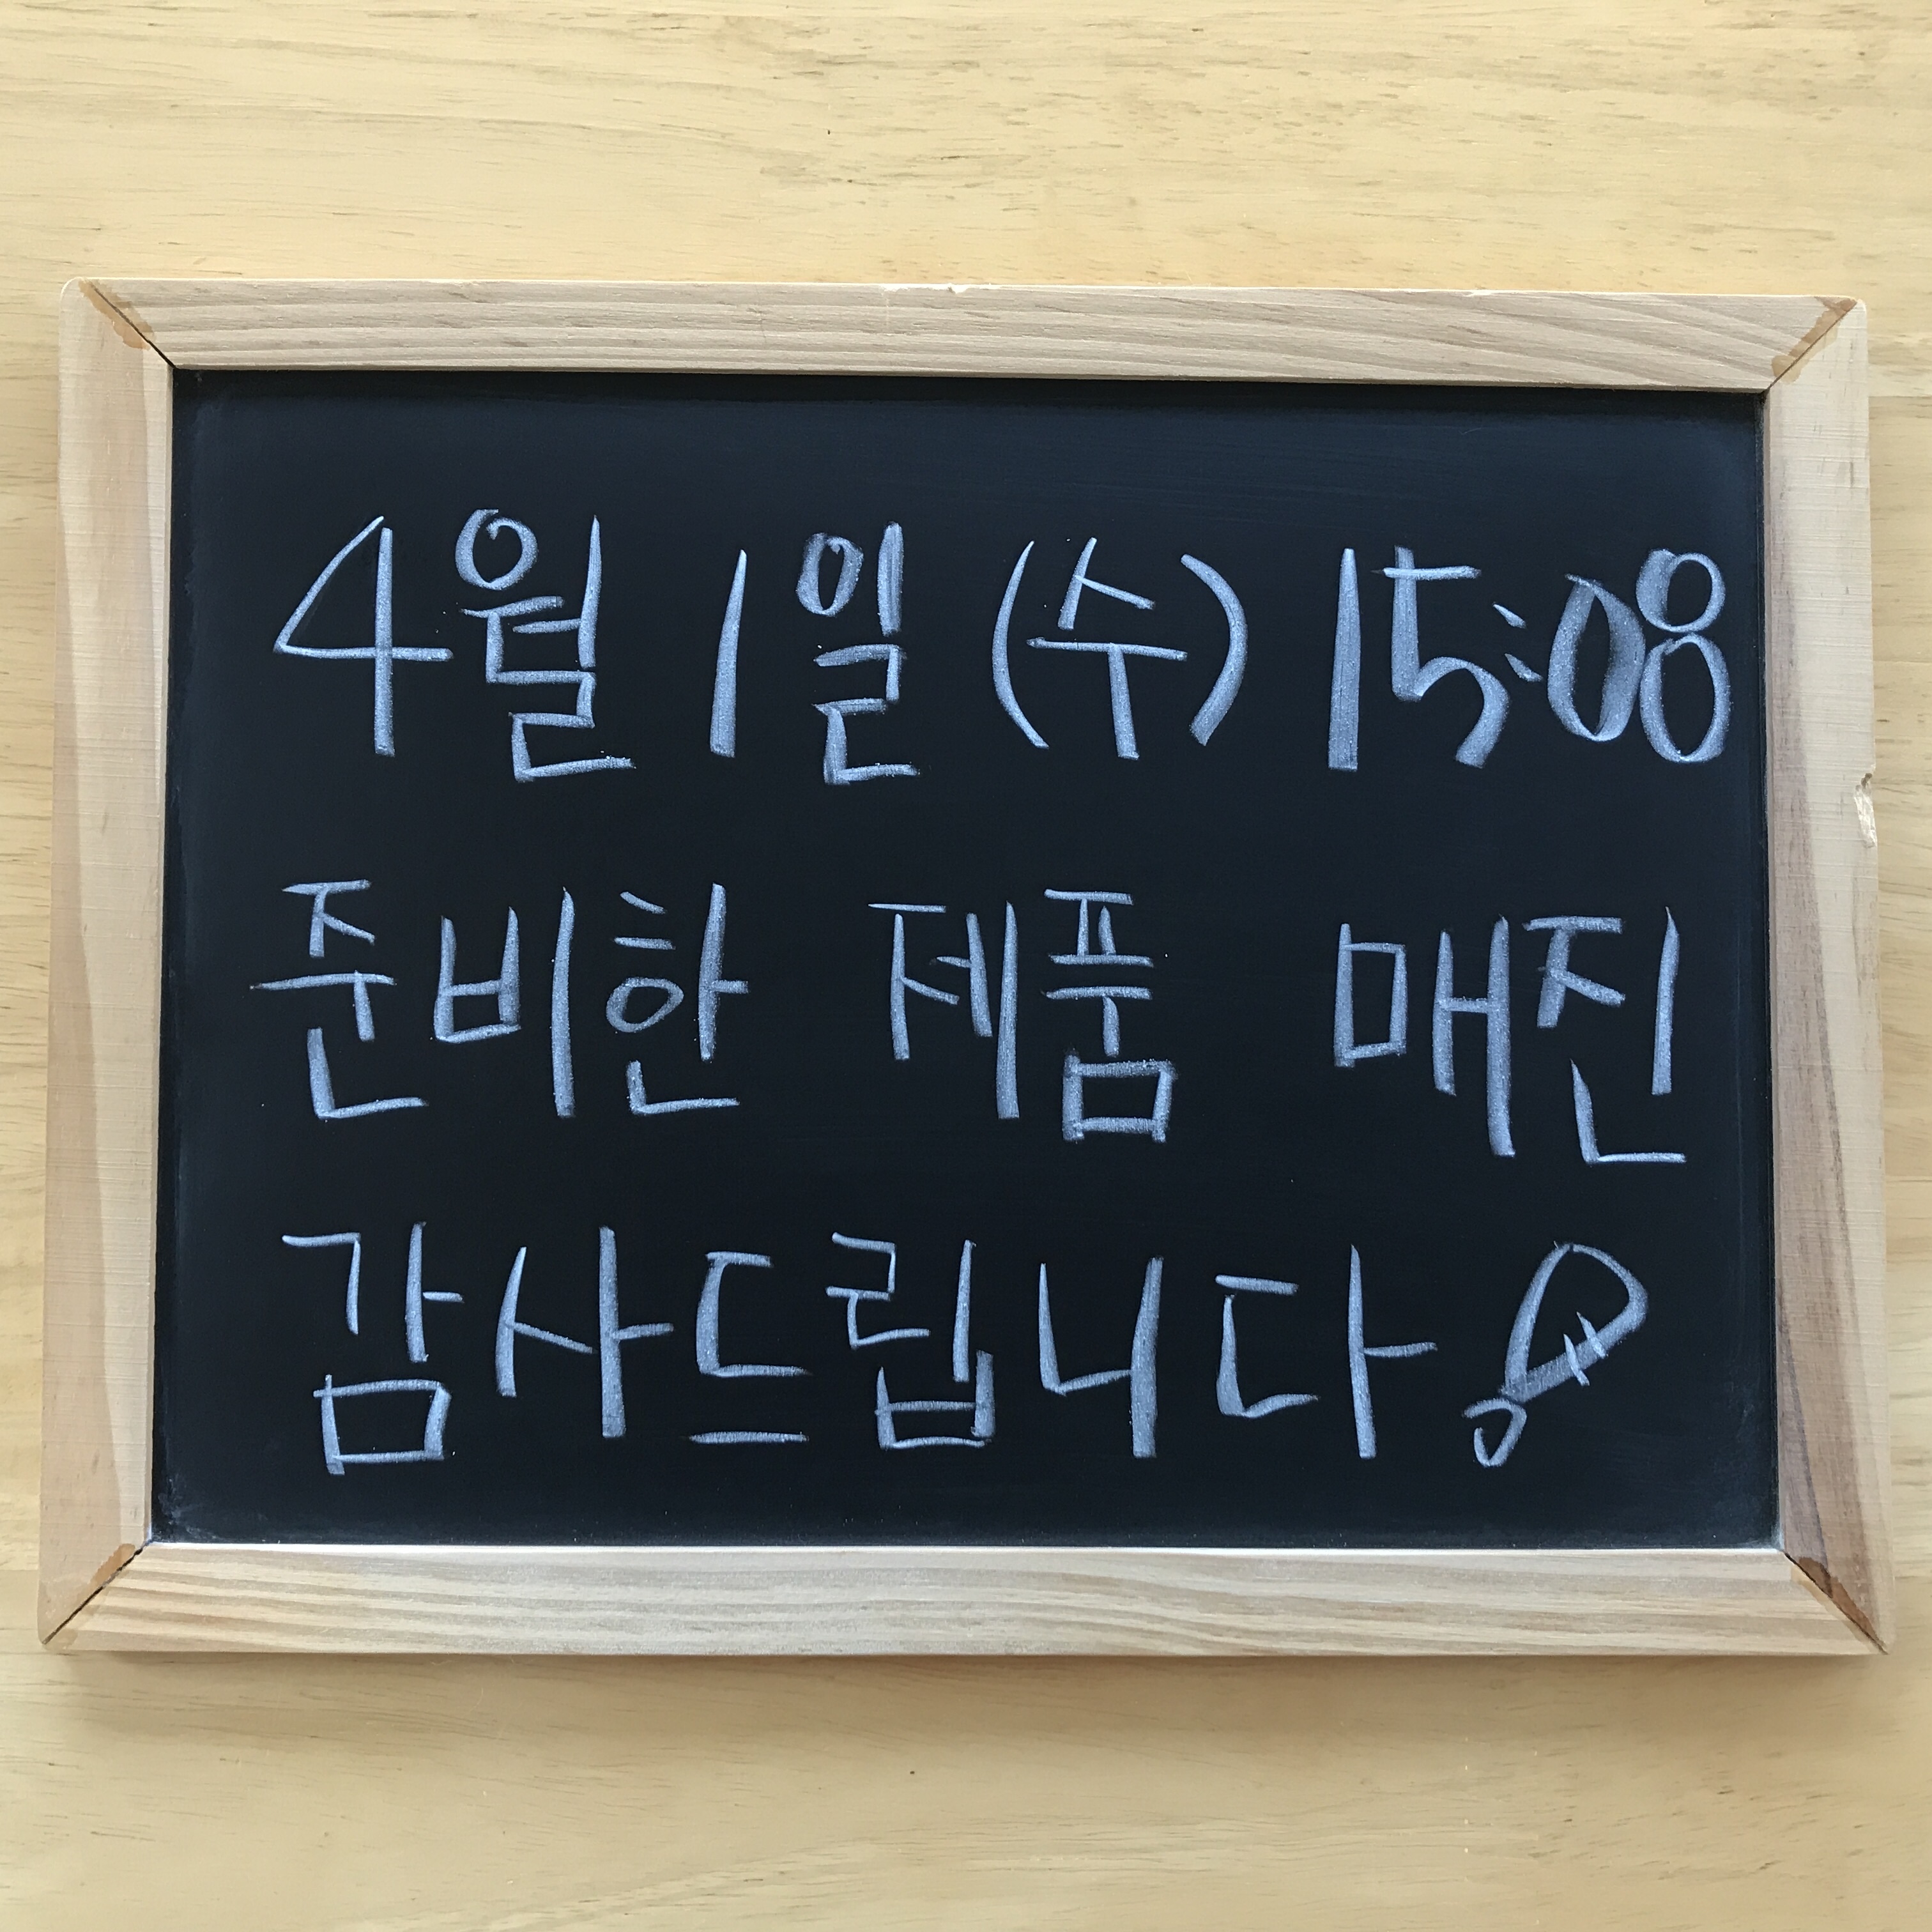 4월 1일 (수) 15:08
준비한 제품 매진
감사드립니다!